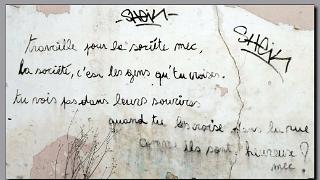 SHEIK
SHEIK
travaille pour la société mec,
la société, c'est les gens qu'tu croises.
tu vois pas dans leurs sourires
quand tu les croise dans la rue
comme ils sont heureux?
mec.